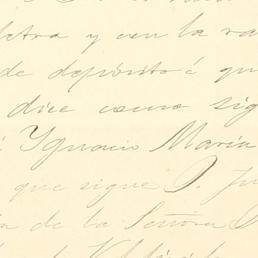 letra y con la ra
de depósito é qu
dice como sig
Ygnacio María
que sigue D. Ju
de la Señora D